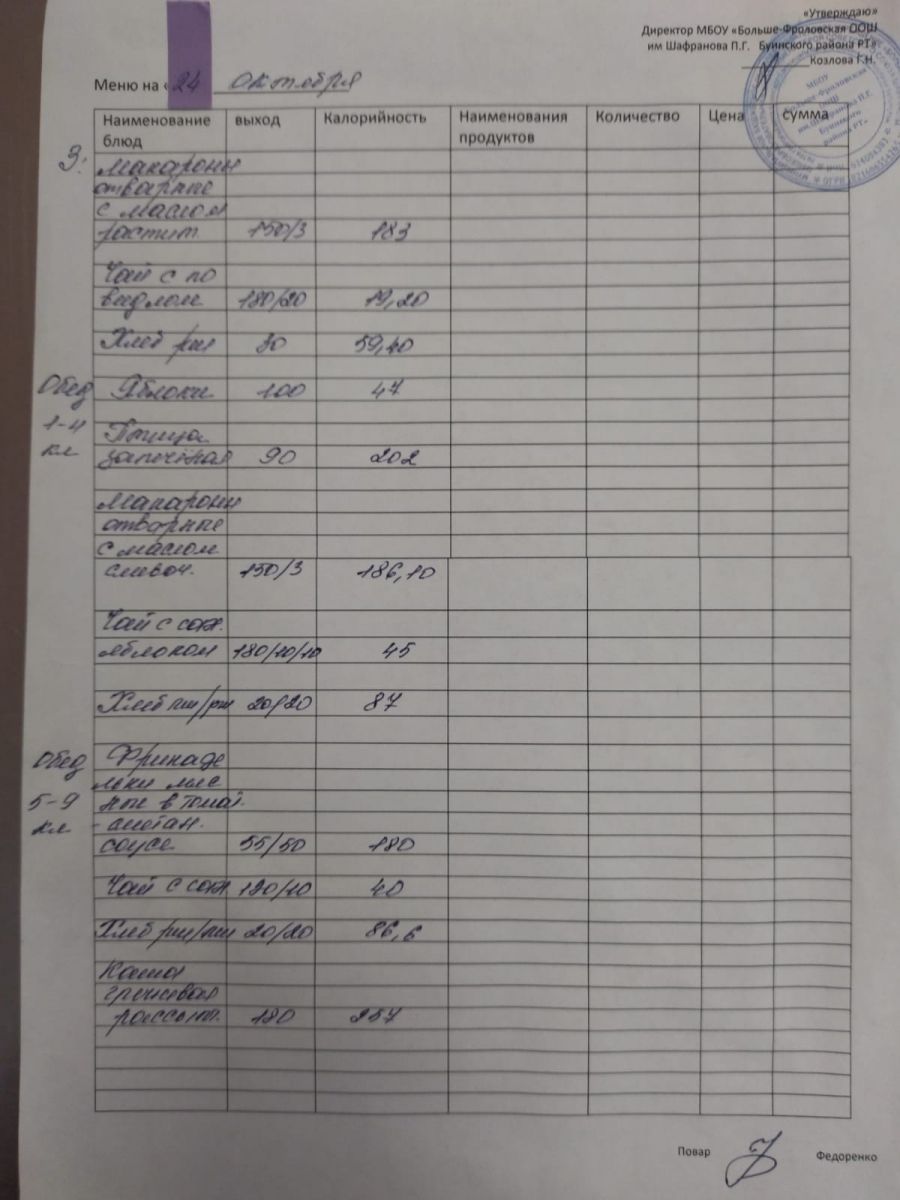 «Утверждаю»
Директор МБОУ «Больше-Фроловская ООШ
им Шафранова П.Г. Буинского района РТ»
Козлова Г.Н.
Меню на « 24 октября
Наименование блюд выход Калорийность Наименования продуктов Количество Цена сумма
З: Макароны
отварные
с маслом
растит. 150/3 183
Чай с по
видлом 180/20 79,20
Хлеб рж 30 59,40
Обед Яблоки 100 47
1-4 Птица
кл запечённая 90 202
Макароны
отварные
с маслом
сливоч. 150/3 186,10
Чай с сах.
яблоком 180/10/10 45
Хлеб пш/рж 20/20 87
Обед Фрикаде
льки мяс
5-9 ные в томат.
кл - сметан.
соусе 55/50 180
Чай с сах 180/10 40
Хлеб рж/пш 20/20 86,6
Каша
гречневая
рассып. 180 257
Повар Федоренко